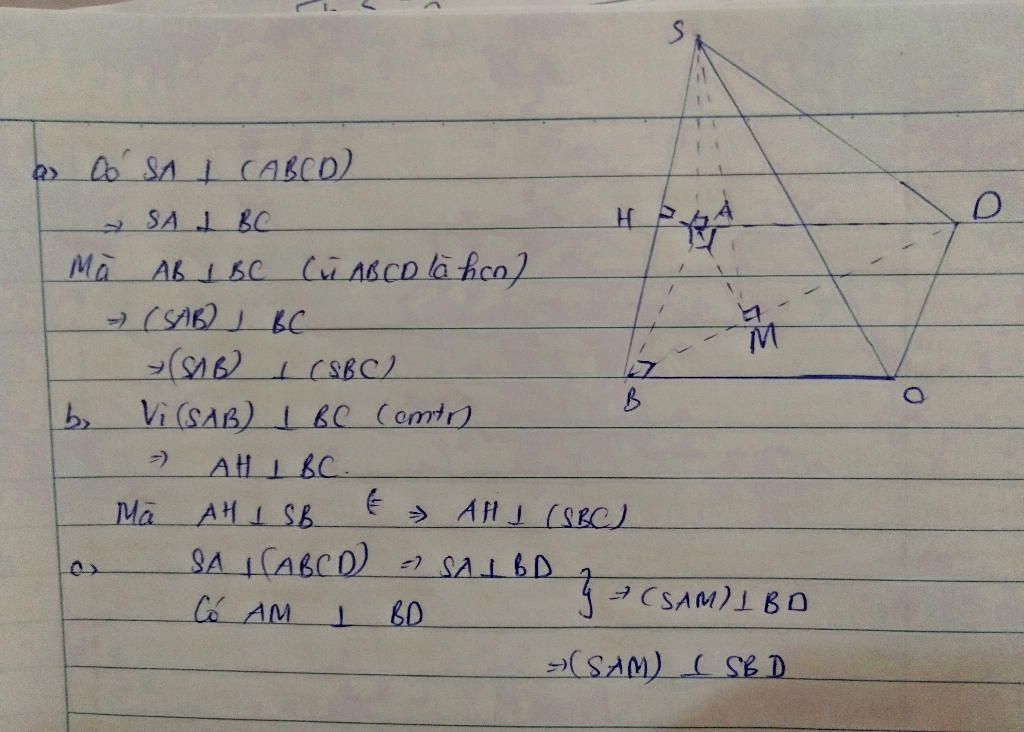 a, Có SA ⊥ (ABCD)
⇒ SA ⊥ BC
Mà AB ⊥ BC (vì ABCD là hcn)
⇒ (SAB) ⊥ BC
⇒ (SAB) ⊥ (SBC)
b, Vì (SAB) ⊥ BC (cmtr)
⇒ AH ⊥ BC.
Mà AH ⊥ SB ⇒ AH ⊥ (SBC)
c, SA ⊥ (ABCD) ⇒ SA ⊥ BD
Có AM ⊥ BD } ⇒ (SAM) ⊥ BD
⇒ (SAM) ⊥ SBD
S
H
A
D
M
B
C